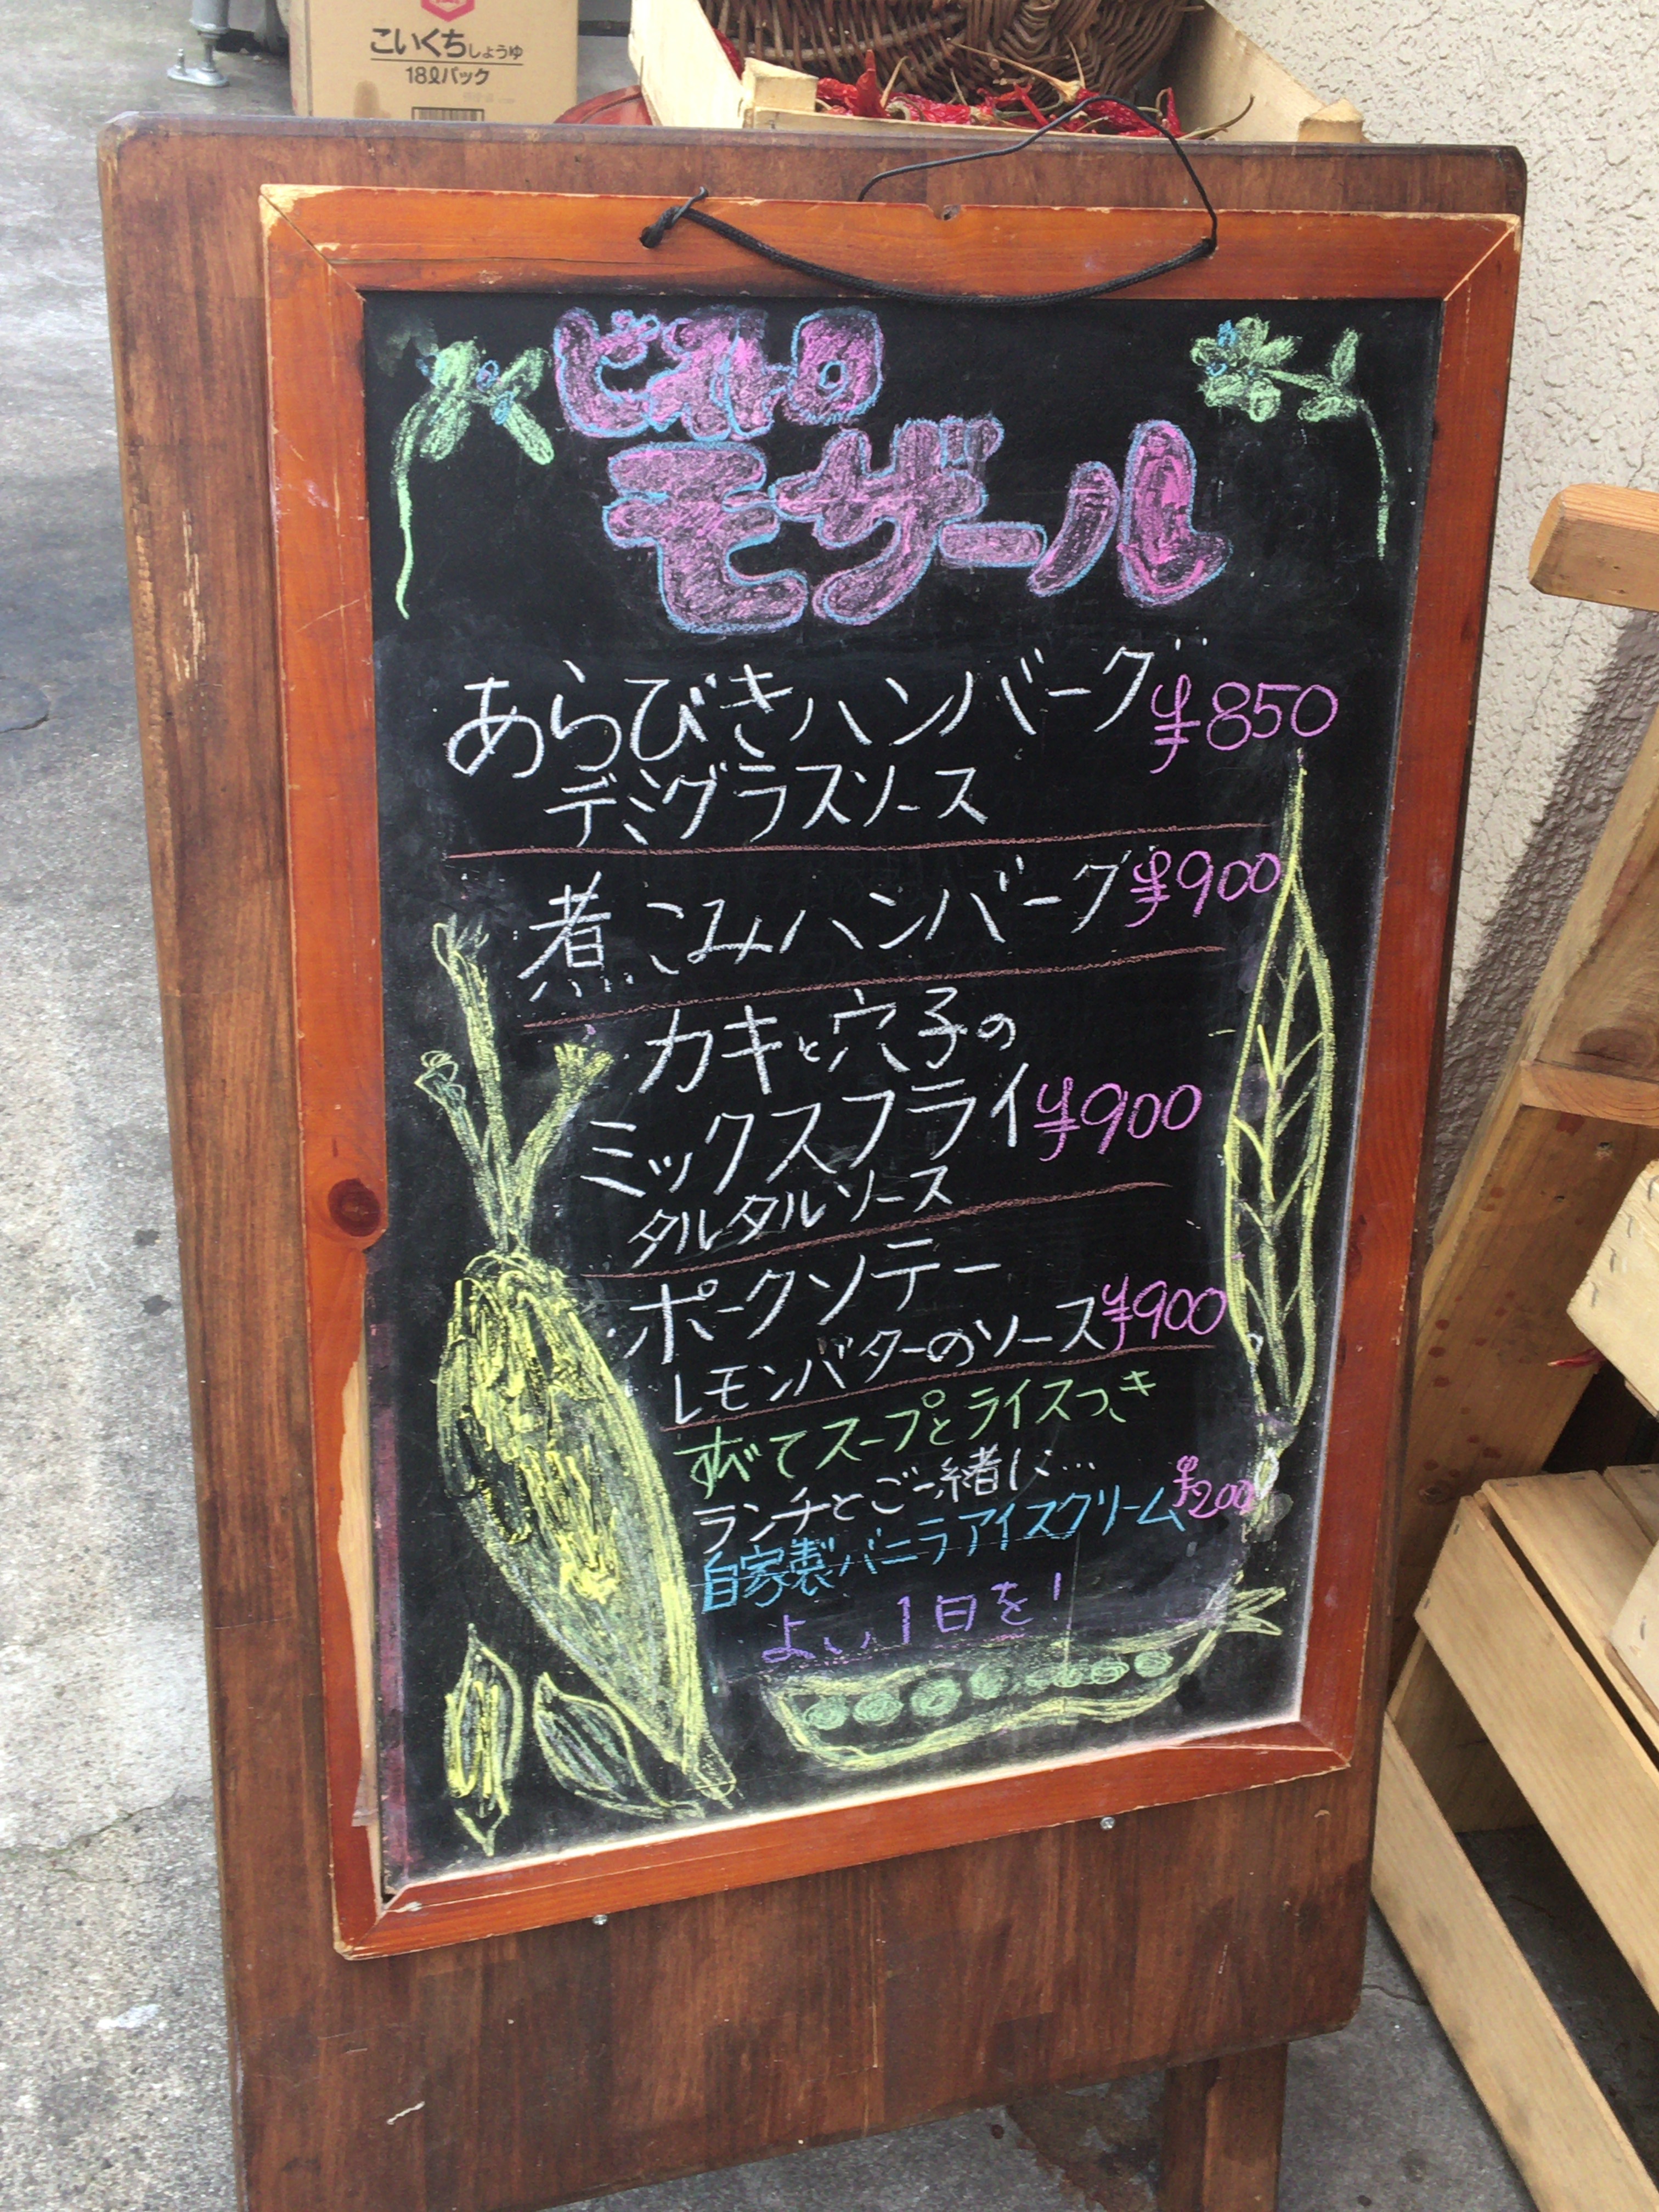 こいくちしょうゆ
18ℓパック
ビストロ
モザール
あらびきハンバーグ ¥850
デミグラスソース
煮こみハンバーグ ¥900
カキと穴子の
ミックスフライ ¥900
タルタルソース
ポークソテー
レモンバターのソース ¥900
すべてスープとライスつき
ランチとご一緒に…
自家製バニラアイスクリーム ¥200
よい1日を!